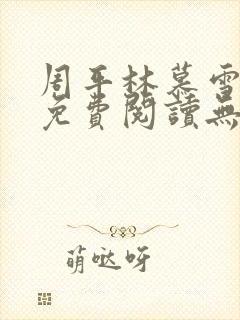 周平林慕雪
免費閱讀無
萌噠呀